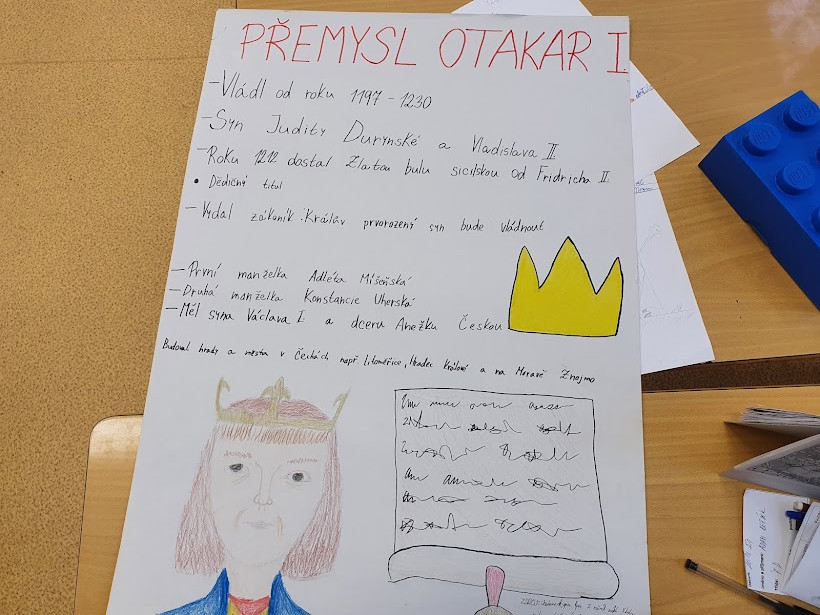 PŘEMYSL OTAKAR I.
- Vládl od roku 1197 - 1230
- Syn Judity Durynské a Vladislava II
- Roku 1212 dostal Zlatou bulu sicilskou od Fridricha II.
• Dědičný titul
- Vydal zákoník: Králův prvorozený syn bude vládnout
- První manželka Adléta Míšeňská
- Druhá manželka Konstancie Uherská
- Měl syna Václava I a dceru Anežku Českou
Budoval hrady a města v Čechách např. Litoměřice, Hradec Králové a na Moravě Znojmo